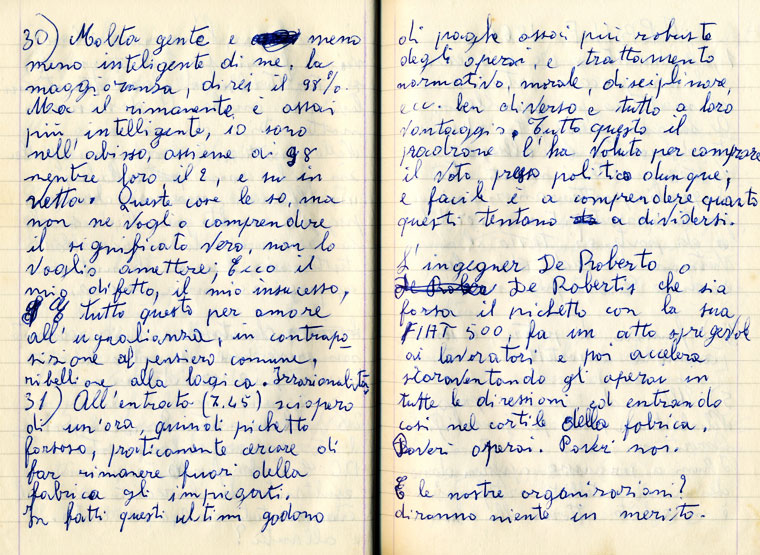 30) Molta gente e meno
meno inteligente di me, la
maggioranza, direi il 98%.
Ma il rimanente è assai
più intelligente, io sono
nell'abisso, assieme ai 98
mentre loro, il 2, e su in
vetta. Queste cose le so, ma
non ne voglio comprendere
il significato vero, non lo
voglio amettere; Ecco il
mio difetto, il mio insucesso,
E tutto questo per amore
all'uguaglianza, in contrapo
sizione al pensiero comune,
ribellione alla logica. Irrazionalità
31) All'entrata (7.45) sciopero
di un'ora, quindi pichetto
forzoso, praticamente cercare di
far rimanere fuori della
fabrica gli impiegati.
In fatti questi ultimi godono
di paghe assai più robuste
degli operai, e trattamento
normativo, morale, disciplinare,
ecc. ben diverso e tutto a loro
vantaggio. Tutto questo il
padrone l'ha voluto per comprare
il voto, preso politico dunque;
e facile è a comprendere quanto
questi tentano a dividersi.
L'ingegner De Roberto o
De Robertis che sia
forza il pichetto con la sua
FIAT 500, fa un atto spregevole
ai lavoratori e poi accelera
scaraventando gli operai in
tutte le direzioni ed entrando
così nel cortile della fabrica.
Poveri operai. Poveri noi.
E le nostre organizazioni?
diranno niente in merito.